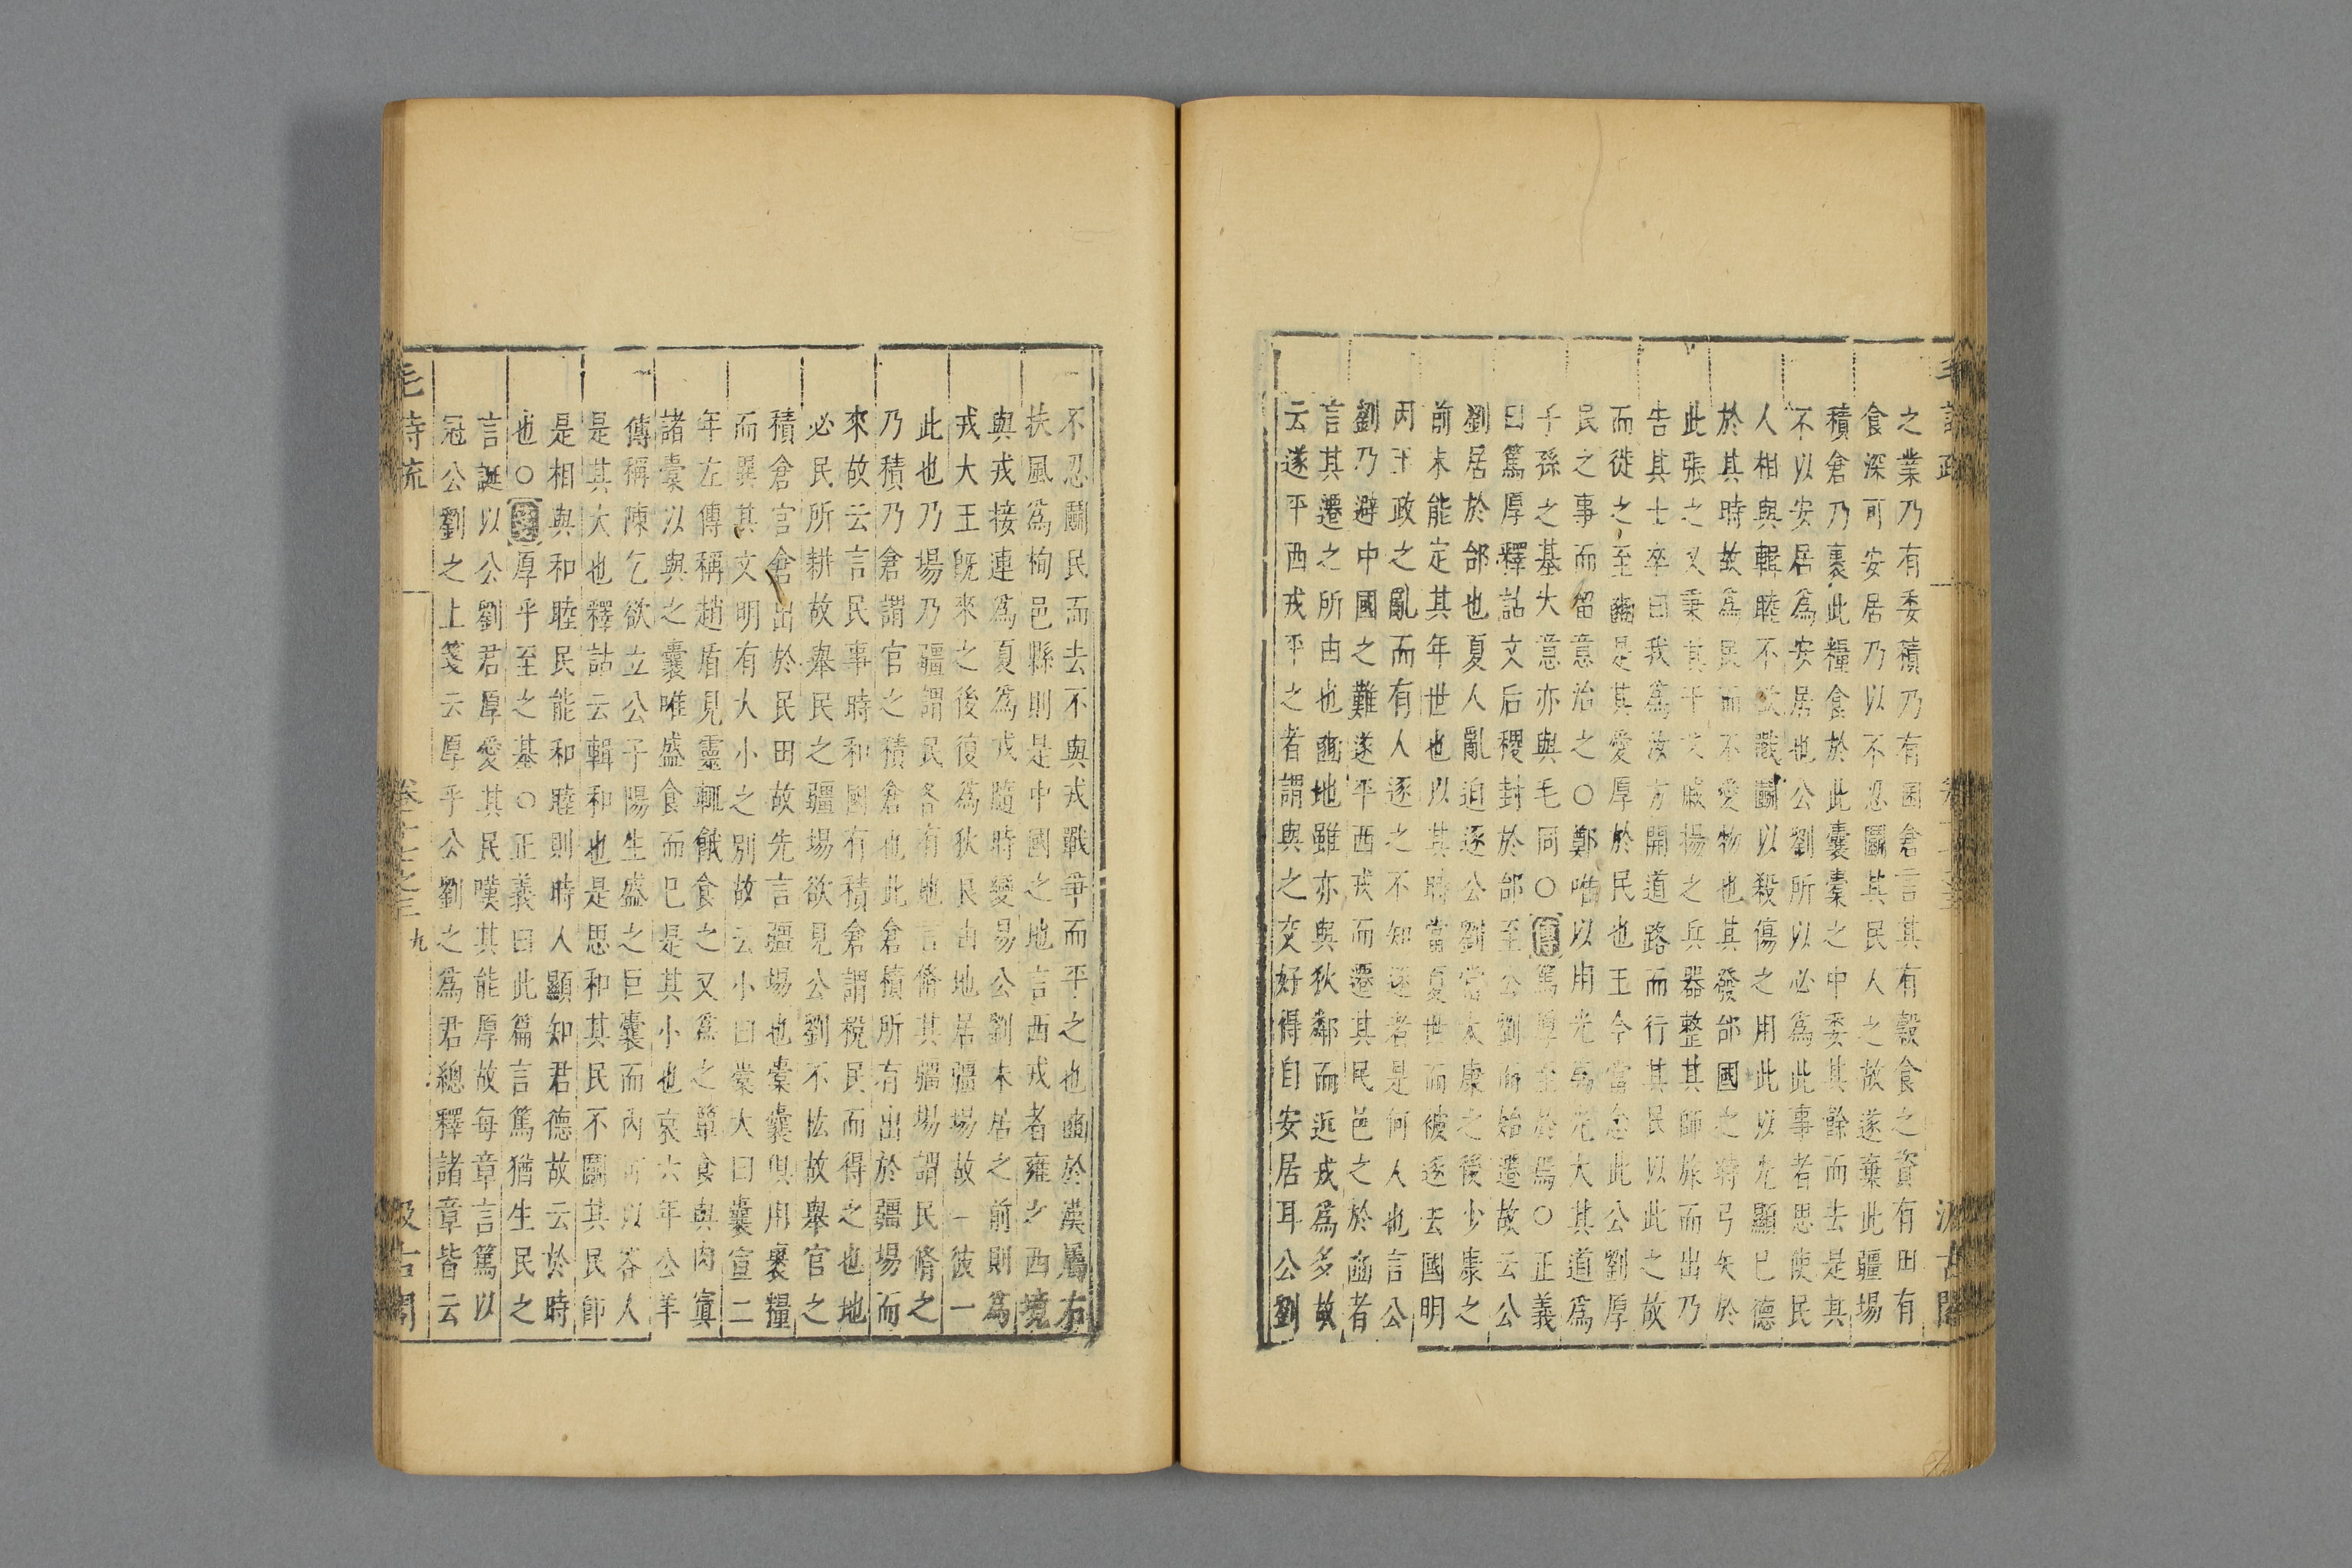 之業乃有委積乃有囷倉言其有穀食之資有田有
食深可安居乃以不忍鬭其民人之故遂棄此疆埸
積倉乃裹此糧食於此囊橐之中委其餘而去是其
不以安居爲安居也公劉所以必爲此事者思使民
人相與輯睦不欲戰鬭以殺傷之用此以光顯己德
於其時故爲民而不愛物也其發邰國之時弓矢於
此張之又秉其干戈戚揚之兵器整其師旅而出乃
告其士卒曰我爲汝方開道路而行其民以此之故
而從之至豳是其愛厚於民也王今當念此公劉厚
民之事而留意治之○鄭唯以用光爲光大其道爲
子孫之基大意亦與毛同○傳篤厚至於焉○正義
曰篤厚釋詁文后稷封於邰至公劉而始遷故云公
劉居於邰也夏人亂迫逐公劉當太康之後少康之
前未能定其年世也以其時當夏世而被逐去國明
丙王政之亂而有人逐之不知逐者是何人也言公
劉乃避中國之難遂平西戎而遷其民邑之於豳者
言其遷之所由也豳地雖亦與狄鄰而近戎爲多故
云遂平西戎平之者謂與之交好得自安居耳公劉
不忍鬭民而去不與戎戰爭而平之也豳於漢屬右
扶風爲栒邑縣則是中國之地言西戎者雍少西境
與戎接連爲夏爲戎隨時變易公劉未居之前則爲
戎大王旣來之後復爲狄民由地居疆埸故一彼一
此也乃埸乃疆謂民各有地言脩其疆埸謂民脩之
乃積乃倉謂官之積倉也此倉積所有出於疆埸而
來故云言民事時和國有積倉謂稅民而得之也地
必民所耕故舉民之疆埸欲見公劉不恡故舉官之
積倉官倉出於民田故先言疆埸也橐囊俱用裹糧
而異其文明有大小之別故云小曰橐大曰囊宣二
年左傳稱趙盾見靈輒餓食之又爲之簞食與肉寘
諸橐以與之囊唯盛食而已是其小也哀六年公羊
傳稱陳乞欲立公子陽生盛之巨囊而內可以容人
是其大也釋詁云輯和也是思和其民不鬭其民卽
是相與和睦民能和睦則時人顯知君德故云於時
也○箋厚乎至之基○正義曰此篇言篤猶生民之
言誕以公劉君厚愛其民嘆其能厚故每章言篤以
冠公劉之上箋云厚乎公劉之爲君總釋諸章皆云
毛詩疏
卷十七之三
九
汲古閣